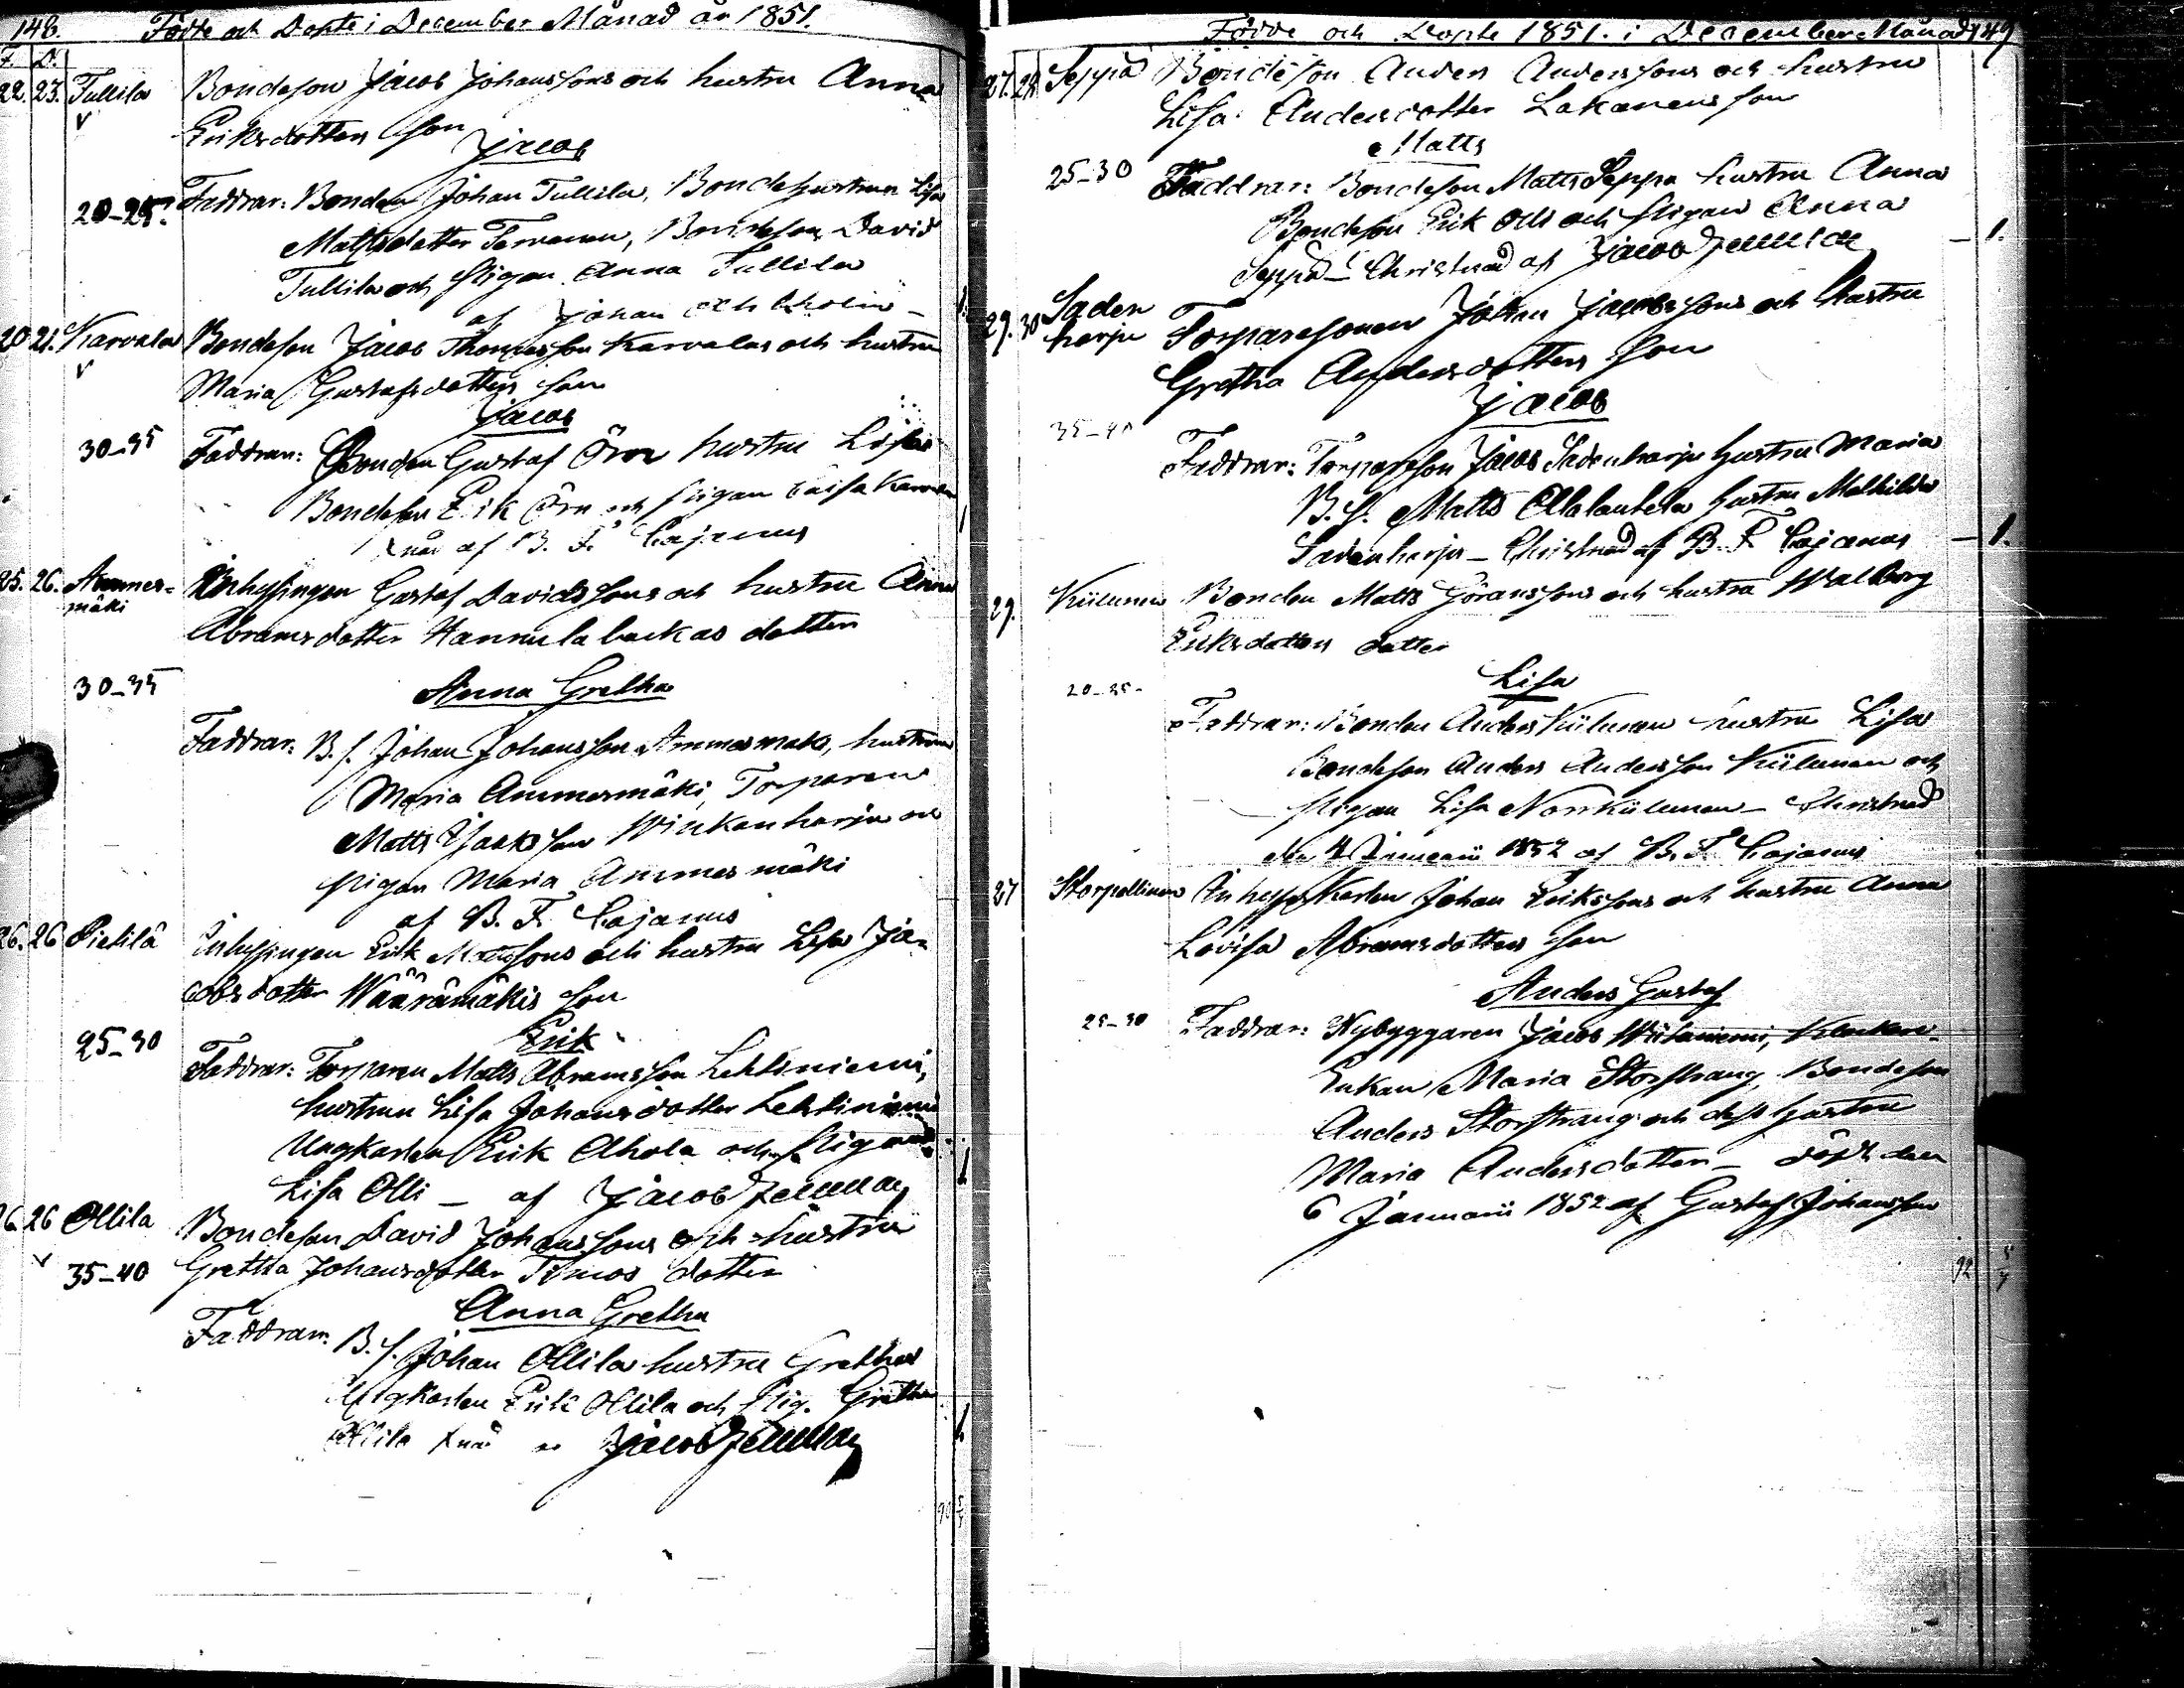 148. Födde och Döpte i December Månad år 1851.
F. D.
22. 23. Tullila Bondeson Jacob Johanssons och hustru Anna
Eriksdotters son
Jacob
20-25. Faddrar: Bonden Johan Tullila, Bondehustrun Lisa
Mattsdotter Servanen, Bondeson David
Tullila och pigan Anna Tullila
af Johan
20 21. Karvala Bondeson Jacob Thomasson Karvalas och hustru
Maria Gustafsdotters son
Jacob
30-35 Faddrar: Bonden Gustaf Örn hustru Lisa
Bondeson Erik Örn och pigan Caisa
Xnad af B. F. Cajanus
25. 26. Ammes=
mäki Inhysingen Gustaf Davidssons och hustru Anna
Abramsdotter Hannulabackas dotter
30-35 Anna Gretha
Faddrar: B. s. Johan Johansson Ammesmäki, hustrun
Maria Ammesmäki, Torparen
Matts Jacksson Wiukanharju och
pigan Maria Ammesmäki
af B. F. Cajanus
26. 26 Pietilä Inhysingen Erik Mattssons och hustru Lisa Ja=
cobsdotter Wäärämäkis son
Erik
25-30 Faddrar: Torparen Matts Abramsson Lehtiniemi,
hustrun Lisa Johansdotter Lehtiniemi
Ungkarlen Erik Ahola och pigan
Lisa Olli - af Jacob Fellman
26 26 Ollila Bondeson David Johanssons och hustru
35-40 Gretha Johansdotter Timos dotter
Anna Gretha
Faddrar: B. s. Johan Ollila hustru Gretha
Ungkarlen Erik Ollila och pig. Gretha
Ollila Xnad af Jacob Fellman
Födde och Döpte 1851. i December Månad 149
27. 28 Seppä Bondeson Anders Anderssons och hustru
Lisa Andersdotter Lakanens son
Matts
25-30 Faddrar: Bondeson Matts Seppä hustru Anna
Bondeson Erik Olli och pigan Anna
Seppä - Christnad af Jacob Fellman
29. 30 Saden
harju Torparesonen Johan Jacobssons och hustru
Gretha Andersdotters son
Jacob
35-40
Faddrar: Torpareson Jacob Sadenharju hustru Maria
B. S. Matts Alalantela hustru Mathilda
Sadenharju - Christnad af B. F. Cajanus
29. Kiilunen Bonden Matts Göranssons och hustru Walborg
Eriksdotters dotter
20-25- Lisa
Faddrar: Bonden Anders Kiilunen hustru Lisa
Bondeson Anders Andersson Kiilunen och
pigan Lisa Norrkiilunen - Christnad
den 4 Januarii 1852 af B. F. Cajanus
27 Storpellinen Inhyses Karlen Johan Erikssons och hustru Anna
Lovisa Abramsdotters son
Anders Gustaf
25-30 Faddrar: Nybyggaren Jacob Wiitaniemi,
Enkan Maria Storstrang, Bondeson
Anders Storstrang och dess hustru
Maria Andersdotter - döpt den
6 Januarii 1852 af Gustaf Johansson